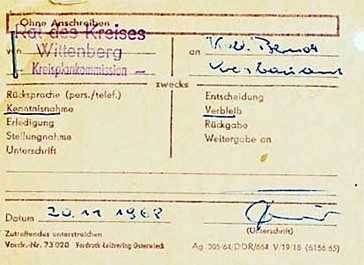 Ohne Anschreiben
Rat des Kreises
von Wittenberg an
Kreisplankommission –
Kreisbauamt
zwecks
Rücksprache (pers./telef.) Entscheidung
Kenntnisnahme Verbleib
Erledigung Rückgabe
Stellungnahme Weitergabe an
Unterschrift
Datum 20.11 1968
(Unterschrift)
Zutreffendes unterstreichen
Vordr.-Nr. 73 020 Vordruck-Leitverlag Osterwieck Ag 305/64/DDR/664 V/19/18 (6156.65)